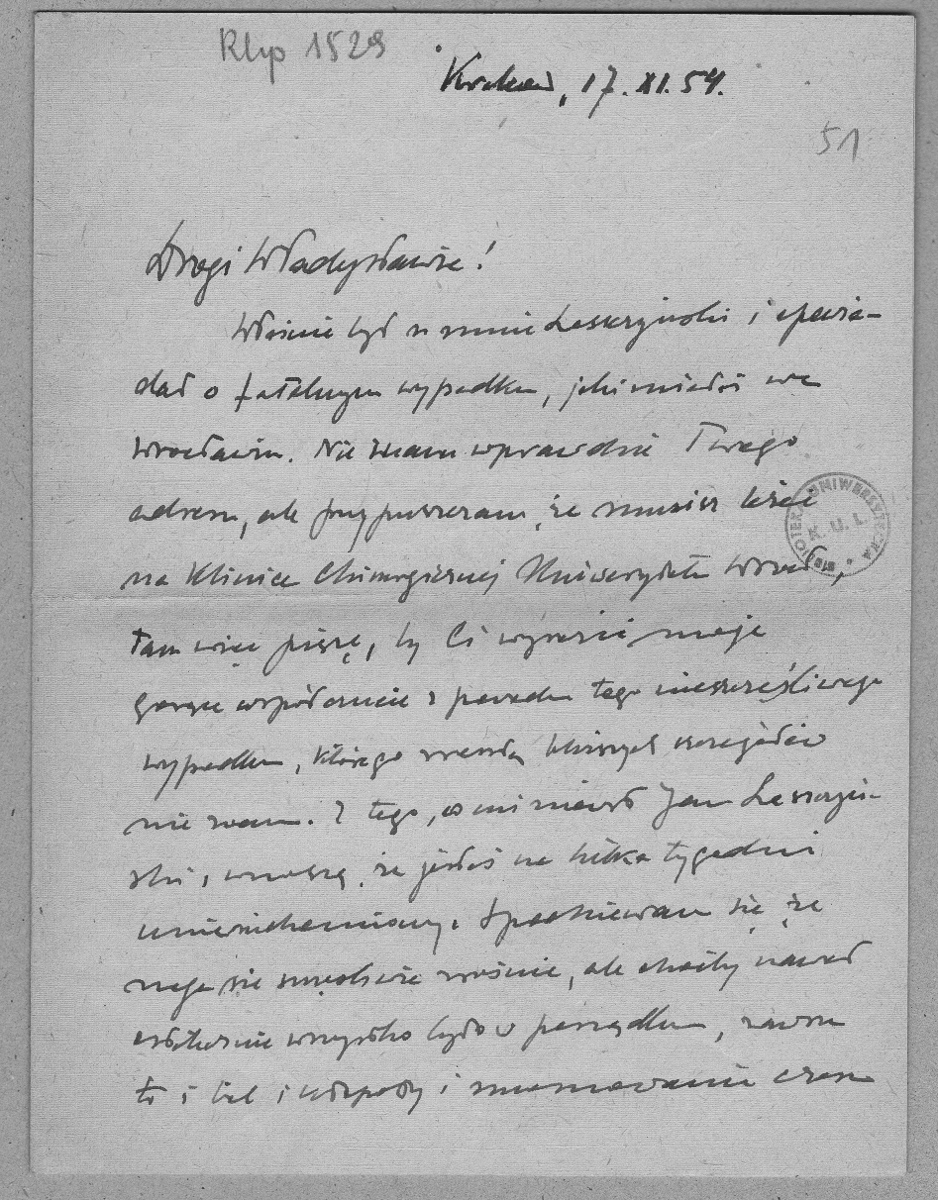 Rkp 1529
Kraków, 17. XI. 54.
51
Drogi Władysławie!
Właśnie był u mnie Leszczyński i opowia-
dał o fatalnym wypadku, jaki miałeś we
Wrocławiu. Nie znam wprawdzie Twego
adresu, ale przypuszczam, że musisz leżeć
na Klinice Chirurgicznej Uniwersytetu Wrocł.,
tam więc piszę, by Ci wyrazić moje
gorące współczucie z powodu tego nieszczęśliwego
wypadku, którego zresztą bliższych szczegółów
nie znam. Z tego, co mi mówił Jan Leszczyń-
ski, wnoszę, że jesteś na kilka tygodni
unieruchomiony. Spodziewam się, że
noga się szczęśliwie zrośnie, ale choćby nawet
ostatecznie wszystko było w porządku, zawsze
to i ból i kłopoty i zmarnowanie czasu
BIBLIOTEKA UNIWERSYTECKA
K. U. L.